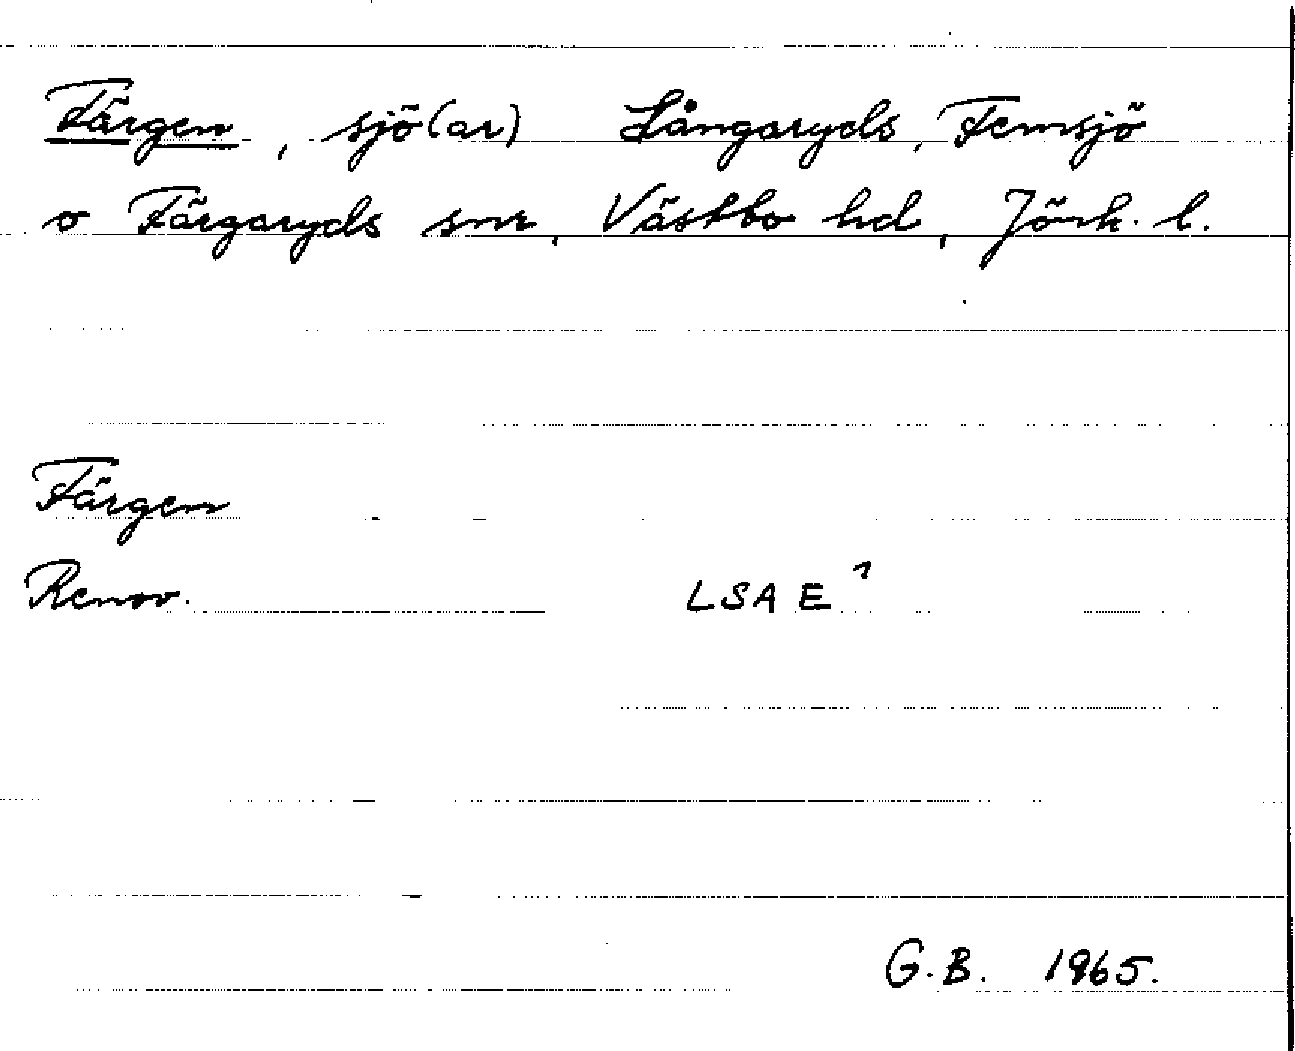 Färgen, sjö(ar) Långaryds, Femsjö
o Färgaryds snr, Västbo hd, Jönk. l.
Färgen
Renov. LSA E¹
G.B. 1965.